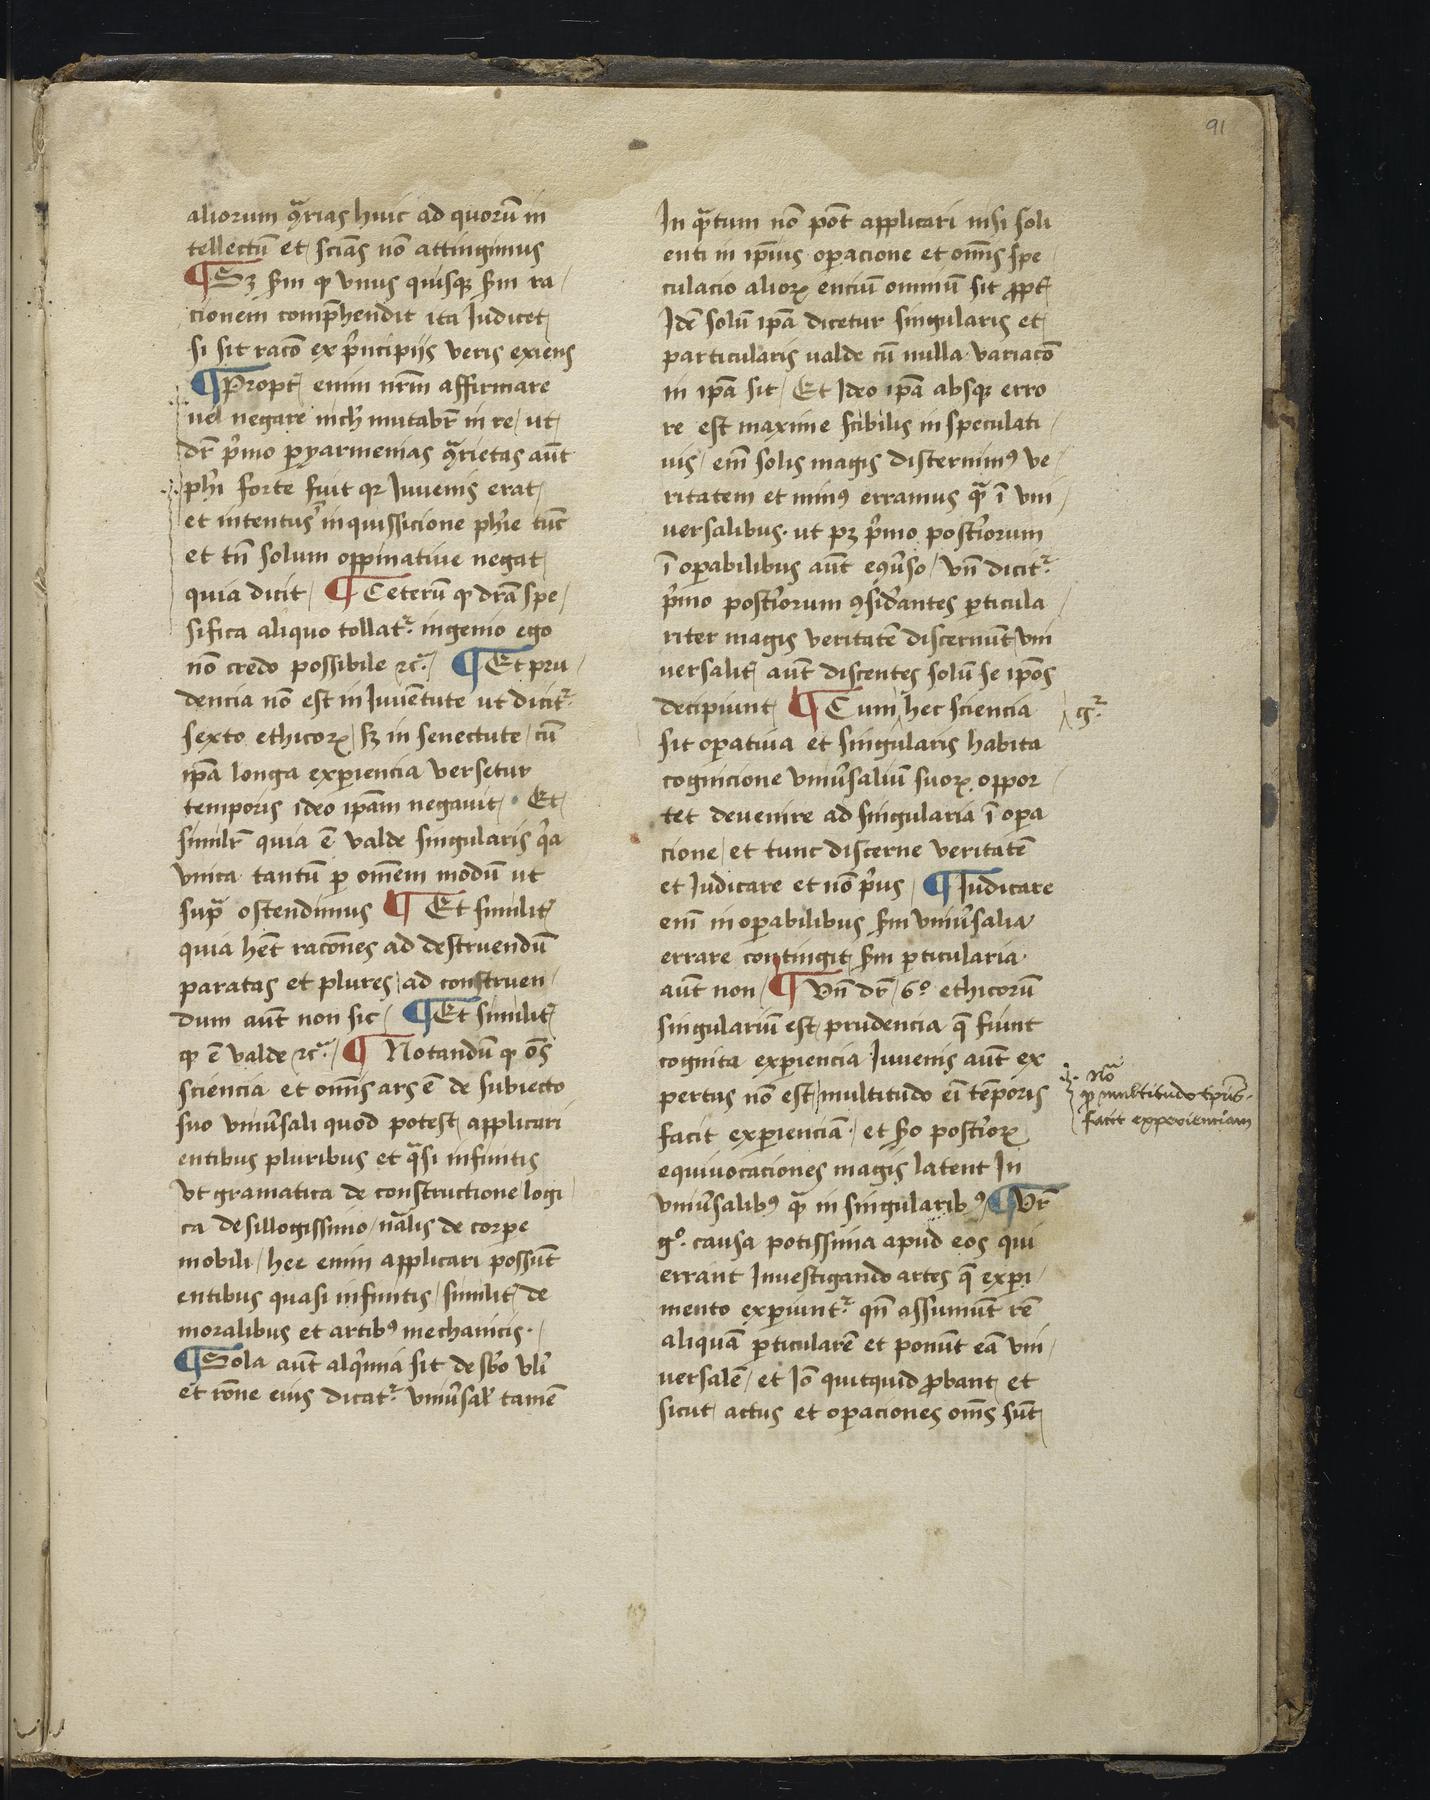 91
aliorum ꝯ̃rias huic ad quorū in
tellectū et scīas nō attingimus
¶ Sꝫ ẜm ꝙ vnus quisqꝫ ẜm ra
cionem comp̃hendit ita Iudicet
si sit racō ex p̃ncipijs veris exiens
¶ Propt̃ enim nr̄m affirmare
uel negare nich̃ mutabr̃ in re / ut
dr̃ p̃mo ꝑyarmenias ꝯ̃rietas aūt
ph̃i forte fuit qꝛ Iuuenis erat
et intentus inquissicione ph̃ie tūc
et tn̄ solum oppinatiue negat
quia dicit / ¶ Ceterū ꝙ dr̃ās spe
sifica aliquo tollat᷑ ingenio ego
nō credo possibile ⁊c̃ / ¶ Et pru
dencia nō est in Iuuētute ut dicit᷑
sexto ethicoꝝ / sꝫ in senectute / cū
ip̄a longa exꝑiencia versetur
temporis ideo ip̄am negauit · Et
similr̃ quia ē valde singularis q̃a
vnica tantū ꝑ om̄em modū ut
sup̃ ostendimus ¶ Et similit̃
quia hēt racōnes ad destruendū
paratas et plures / ad construen
dum aūt non sic / ¶ Et similit̃
ꝙ ē valde ⁊c̃ / ¶ Notandū ꝙ ōs
sciencia et om̄is ars ē de subiecto
suo vniũsali quod potest applicari
entibus pluribus et q̃si infinitis
vt gramatica de constructione logi
ca de sillogissimo / nãlis de corpe
mobili / hec enim applicari possūt
entibus quasi infinitis / similit̃ de
moralibus et artibꝰ mechanicis · /
¶ Sola aūt alq̃mia sit de sb̃o vl̃i
et rōne eius dicat᷑ vniũsal̃ tamē
In q̃tum nō pōt applicari nisi soli
enti in ip̄ius oꝑacione et om̄is spe
culacio alioꝝ enciū omniū sit ꝓpt̃
Idē solū ip̄a dicetur singularis et
particularis ualde cū nulla variacō
in ip̄a sit / Et Ideo ip̄a absqꝫ erro
re est maxime scibilis in speculati
uis / enī solis magis discernimꝰ ve
ritatem et minꝰ erramus q̃ ī vni
versalibus · ut pꝫ p̃mo post̃iorum
ī oꝑabilibus aūt eq̃uso / vn̄ dicit᷑
p̃mo post̃iorum ꝯsid̃antes ꝑticula
riter magis veritatē discernūt vni
uersalit̃ aūt discentes solū se ip̄os
decipiunt ¶ Cum hec sciencia
g᷑
sit oꝑatiua et singularis habita
cognicione vniũsaliū suoꝝ oppor
tet deuenire ad singularia ī oꝑa
cione / et tunc discerne veritatē
et Iudicare et nō p̃us / ¶ Iudicare
enī in oꝑabilibus ẜm vniũsalia
errare contingit ẜm ꝑticularia
aūt non / ¶ Vn̄ dr̃ / 6º ethicorū
singulariū est prudencia q̃ fiunt
cognita exꝑiencia Iuuenis aūt ex
pertus nō est / multitudo eī tēporis
facit exꝑienciā · / et ẜo post̃ioꝝ
Nõ
ꝙ multitudo tp̄is
facit experienciam
equiuocaciones magis latent In
vniũsalibꝰ q̃ in singularibꝰ / ¶ Vr̃
gº · causa potissima apud eos qui
errant Inuestigando artes q̃ exꝑi
mento exꝑiunt᷑ qn̄ assumūt rē
aliquā ꝑticularē et ponūt eā vni
uersalē / et Iō quitquid ꝓbant et
sicut actus et oꝑaciones om̄s sūt